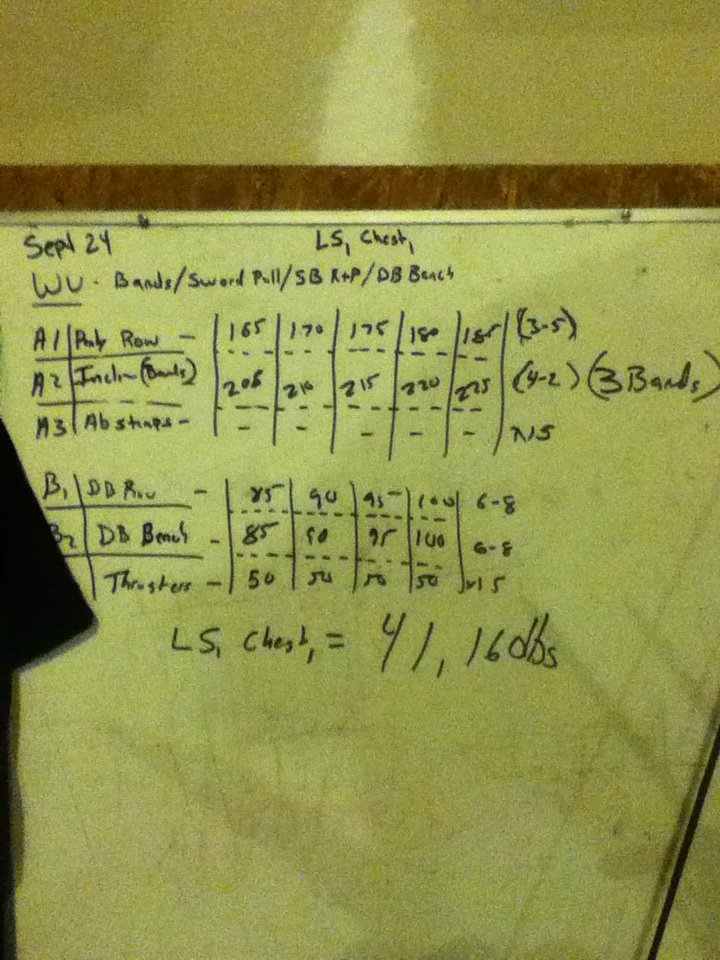 Sept 24 LS, Chest,
WU - Bands/Sword Pull/SB R+P/DB Bench
A1 Row - 165 170 175 180 185 (3-5)
A2 Incline (Bands) 205 210 215 220 225 (4-2) (3 Bands)
A3 Ab straps - - - - - - x15
B1 DB Row - 85 90 95 100 6-8
B2 DB Bench - 85 90 95 100 6-8
Thrusters - 50 50 50 50 x15
LS, Chest, = 41,160lbs